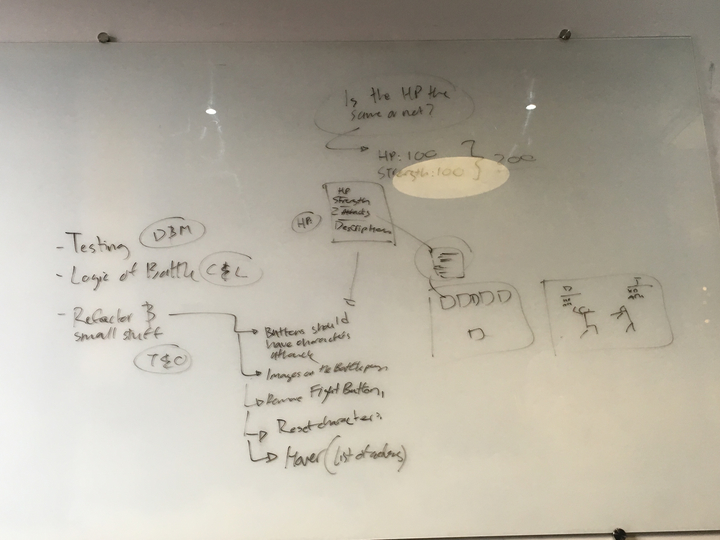 Is the HP the
same or not?
HP: 100
Strength: 100
200
HP
Strength
2 attacks
Description
HA
- Testing
D&M
- Logic of Battle
C&L
- Refactor &
small stuff
T&O
Buttons should
have characters
attack
Images on the Battle page
Remove Fight Button
Reset characters
Hover (list of